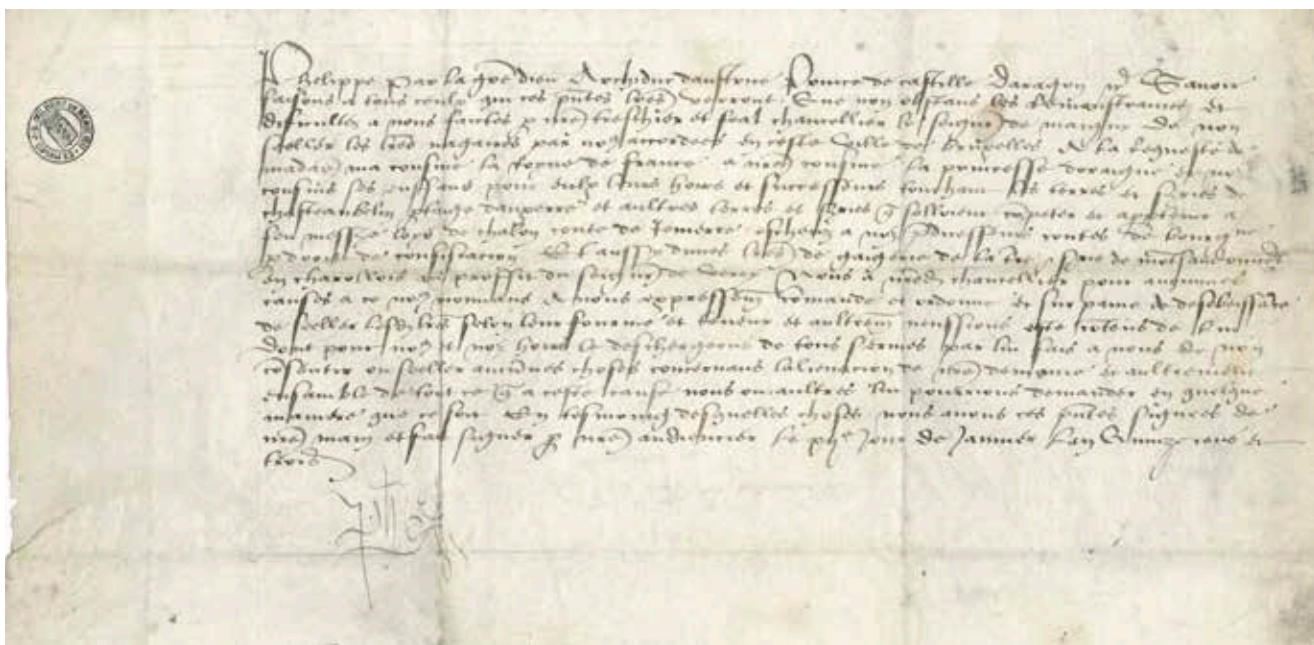 Phelippe par la gce dieu Archiduc daustrice Prince de castille daragon &c Sauoir
faisons a tous ceulx qui ces pntes lres verront Que non obstans les Remonstrances et
difficultez a nous faictes p nre treschier et feal chancellier le seigr de maigny De non
seeller les lres nagaires par nous accordees en ceste ville de Bruxelles A la Requeste de
madame ma cousine la Royne de france a nre cousine la princesse dorange et noz
cousins ses enffans pour eulx leurs hoirs et successeurs touchant les terres et sries de
chasteaubelin dauxerre et aultres terres et sries q souloient competer et appertenir a
feu messire loys de chalon conte de Tonnerre escheuz a noz predecesseurs contes de bourgne
p droit de confiscacion Et aussy dunes lres de gaigerie de la tre et srie de
en charollois au prouffit du seigr de Nous a nredit chancellier pour aucunes
causes a ce nous mouuans Auons expressemt comande et ordonne et sur paine de desobeissance
de seeller lesdites lres selon leur fourme et teneur et aultrement neussions este contens de luy
Dont pour nous et noz hoirs le deschergeons de tous sermens par luy fais a nous de non
consentir ou seeller aucunes choses concernans lalienacion de nre demaine et aultrement
ensamble de tout ce q a ceste cause nous ou aultres luy pourrions demander en quelque
maniere que ce soit En tesmoing desquelles choses nous auons ces pntes signees de
nre main et fait signer p nre audiencier le jour de Januier lan Quinze cens et
trois